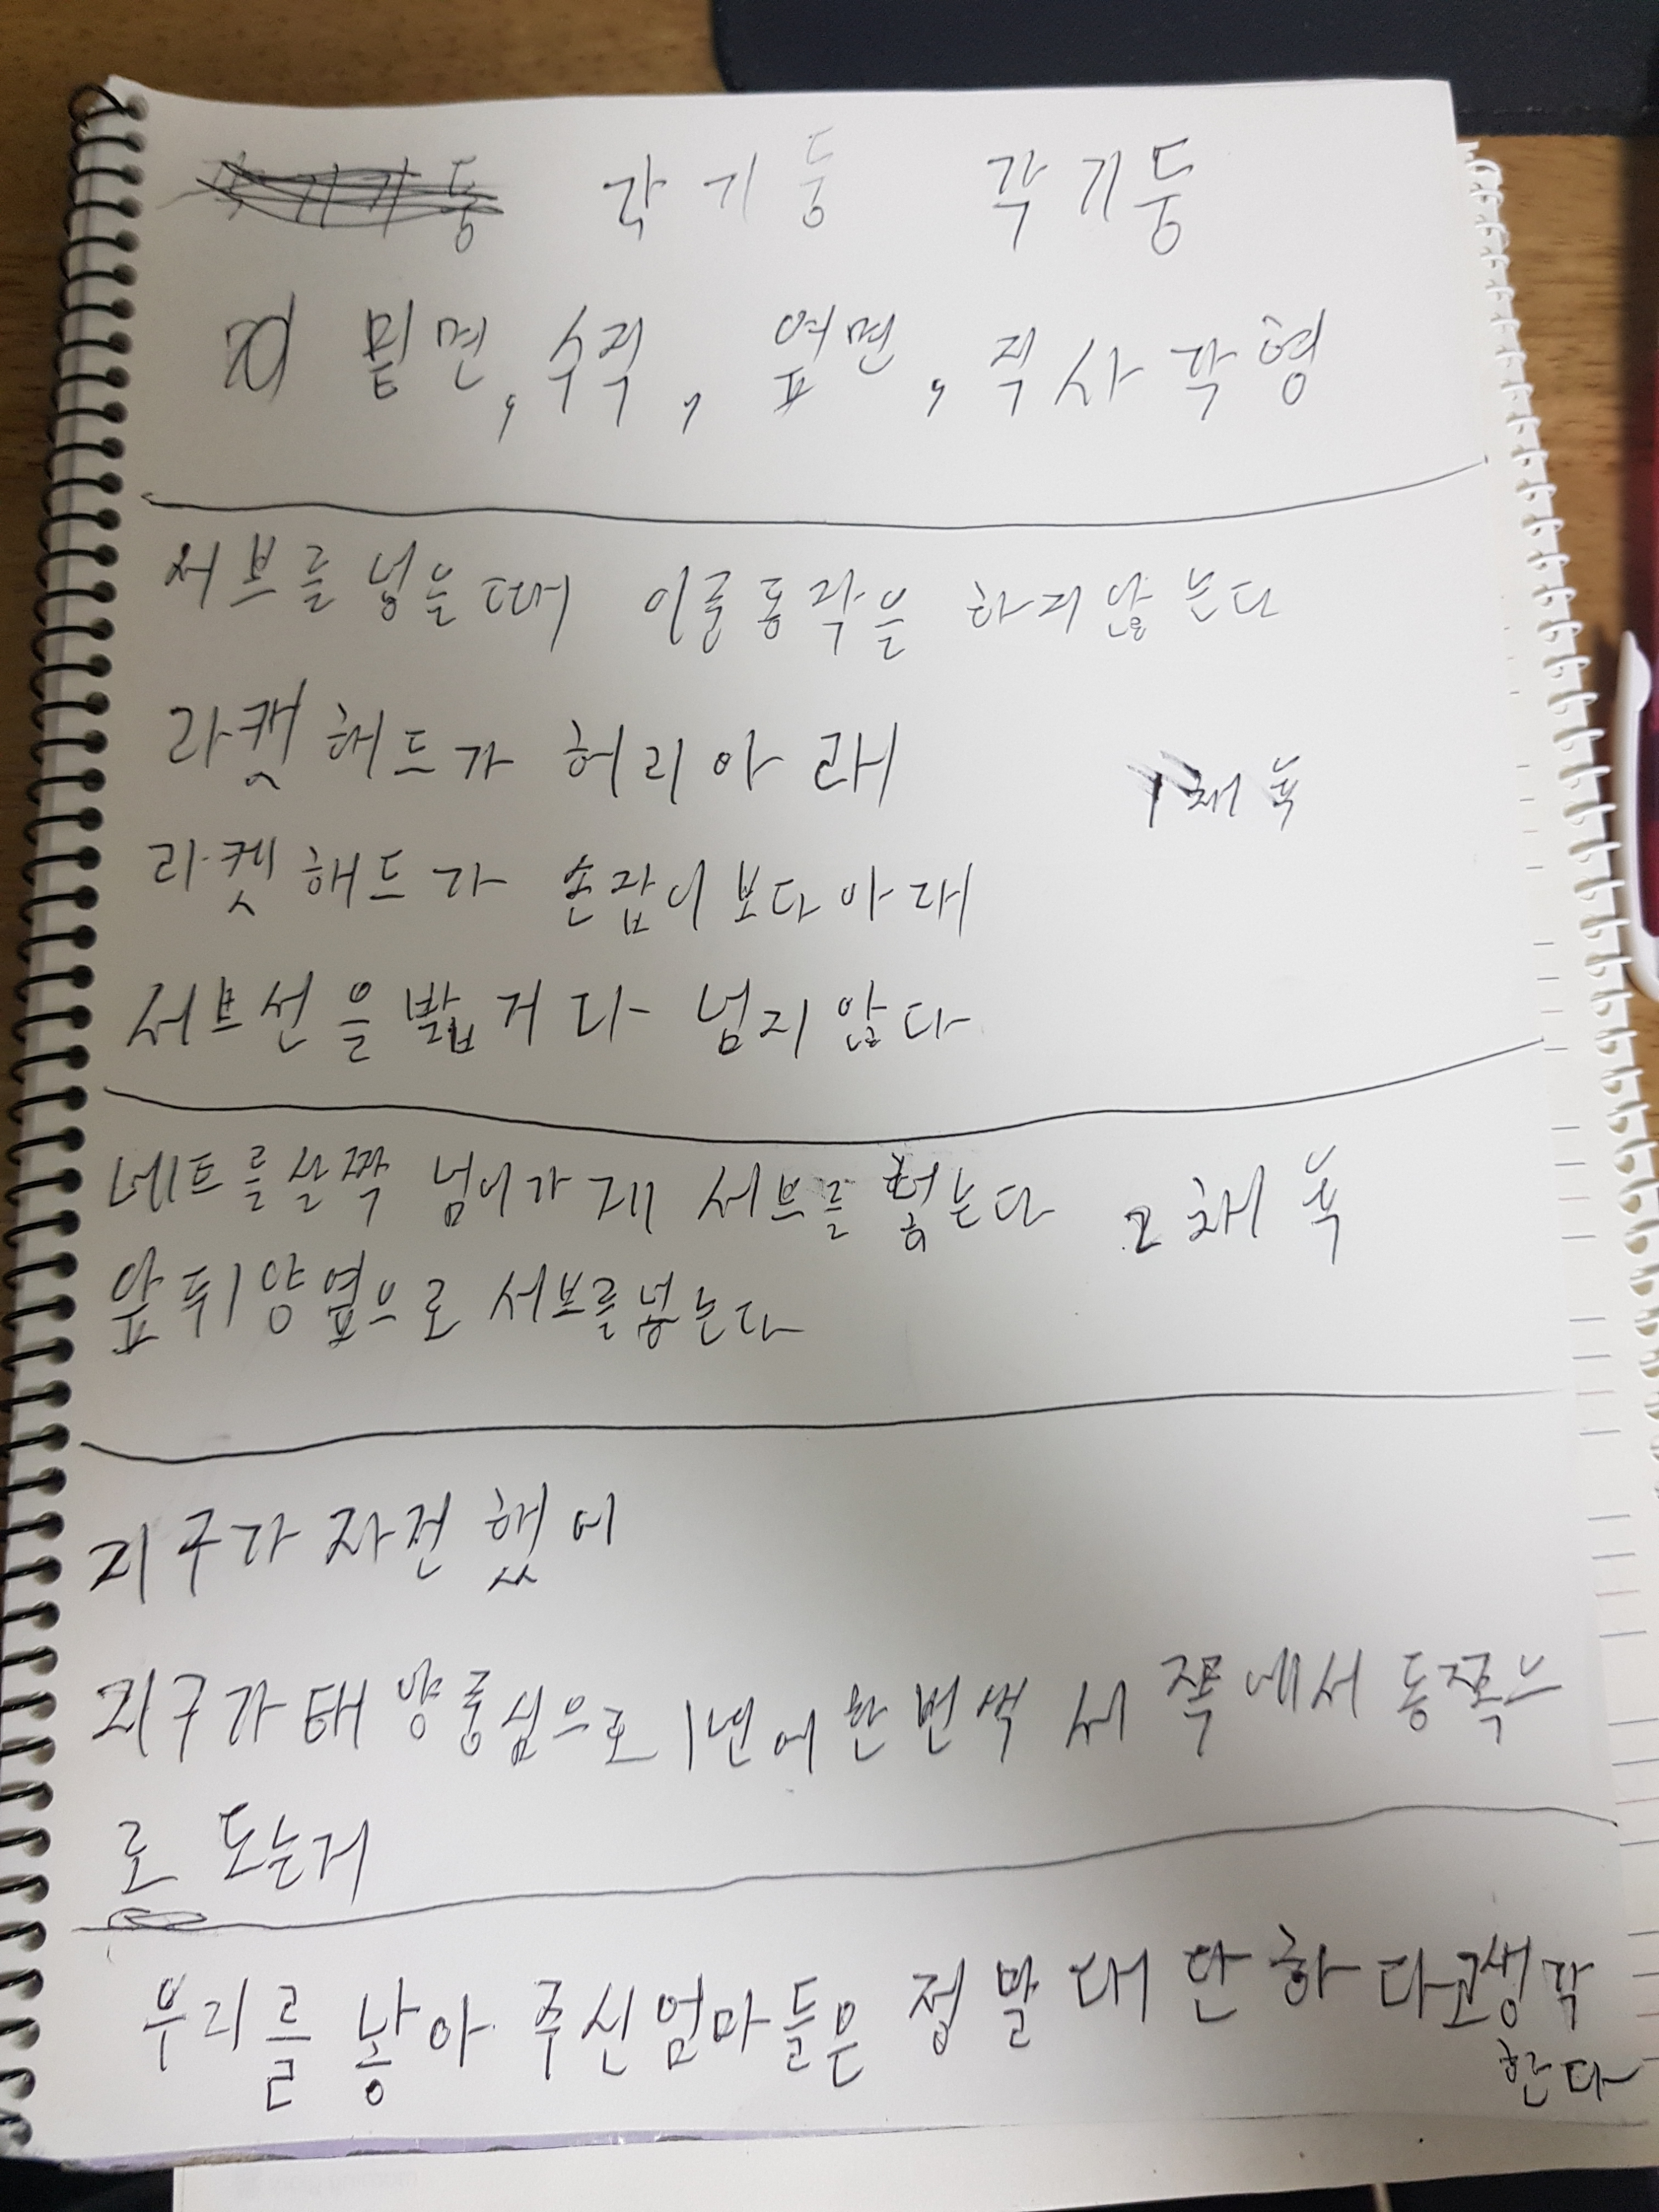 각기둥 각기둥
밑면, 수직, 옆면, 직사각형
서브를 넣을때 이중동작을 하지않는다
라켓 해드가 허리아래
1채육
라켓 해드가 손잡이보다아래
서브선을밟거다 넘지않다
네트를살짝 넘어가게 서브를 넣는다 2채육
앞뒤양옆으로 서브를넣는다
지구가 자전했어
지구가태양중심으로 1년에한번씩 서쪽에서 동쪽으
로 도는거
우리를 낳아 주신엄마들은 정말대단하다고생각
한다